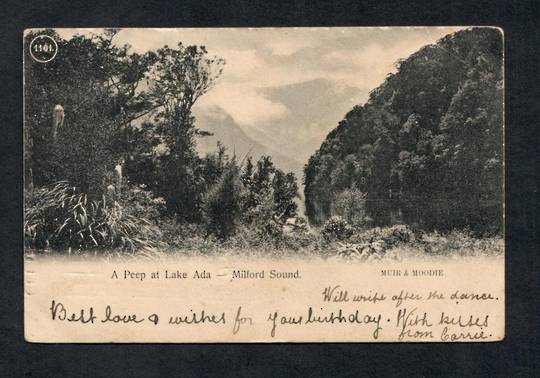 1101.
A Peep at Lake Ada — Milford Sound.
MUIR & MOODIE
Will write after the dance.
Best love & wishes for your birthday. With kisses
from Carrie.